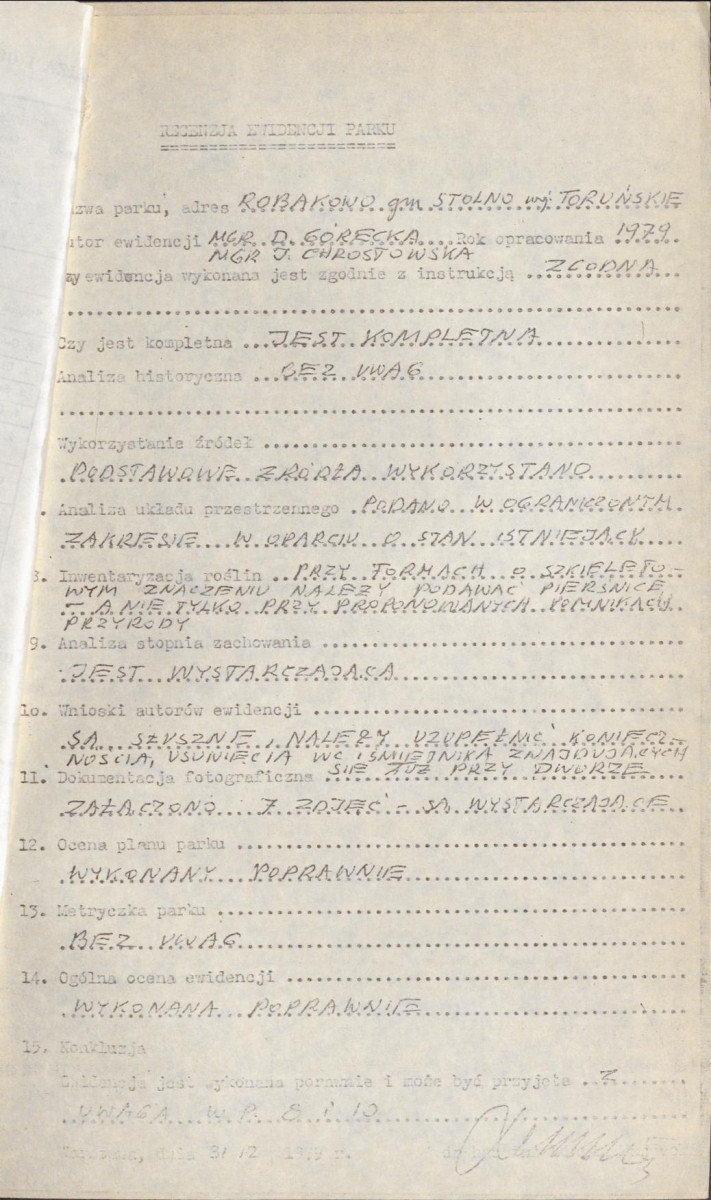 RECENZJA EWIDENCJI PARKU
zwa parku, adres ROBAKOWO gm STOLNO woj. TORUŃSKIE
utor ewidencji MGR D. GÓRECKA Rok opracowania 1979
MGR J. CHROSTOWSKA
zy ewidencja wykonana jest zgodnie z instrukcją ZGODNA
Czy jest kompletna JEST KOMPLETNA
Analiza historyczna BEZ UWAG
Wykorzystanie źródeł
PODSTAWOWE ŹRÓDŁA WYKORZYSTANO
. Analiza układu przestrzennego PODANO W OGRANICZONYM
ZAKRESIE W OPARCIU O STAN ISTNIEJĄCY
8. Inwentaryzacja roślin PRZY FORMACH O SZKIELETO-
WYM ZNACZENIU NALEŻY PODAWAĆ PIERŚNICE
- A NIE TYLKO PRZY PROPONOWANYCH POMNIKACH
PRZYRODY
9. Analiza stopnia zachowania
JEST WYSTARCZAJĄCA
10. Wnioski autorów ewidencji
SĄ SŁUSZNE, NALEŻY UZUPEŁNIĆ KONIECZ-
NOŚCIĄ USUNIĘCIA WC I ŚMIETNIKA ZNAJDUJĄCYCH
11. Dokumentacja fotograficzna SIĘ TUŻ PRZY DWORZE
ZAŁĄCZONO 7 ZDJĘĆ - SĄ WYSTARCZAJĄCE
12. Ocena planu parku
WYKONANY POPRAWNIE
13. Metryczka parku
BEZ UWAG
14. Ogólna ocena ewidencji
WYKONANA POPRAWNIE
15. Konkluzja
Ewidencja jest wykonana poprawnie i może być przyjęta Z
UWAGĄ W P. 8 i 10
Warszawa, dnia 1979 r.